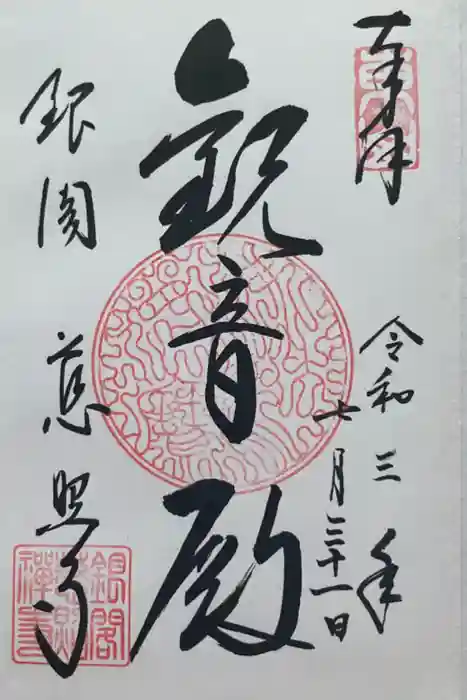 奉拝
令和三年
七月三十一日
観音殿
銀閣
慈照寺
銀閣
慈照
禅寺